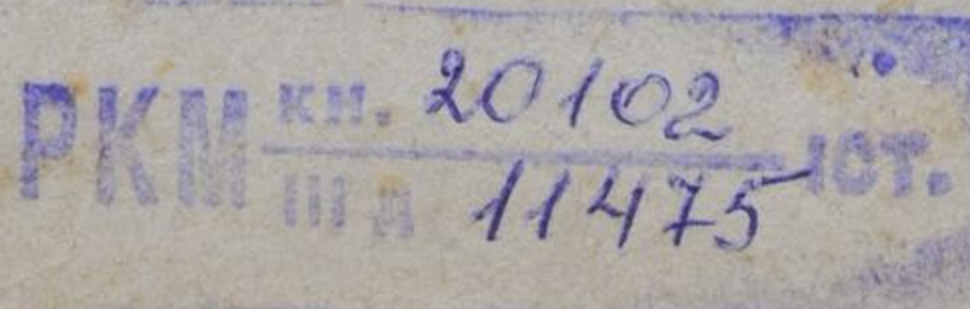 РКМ кн. 20102
III д 11475 іст.